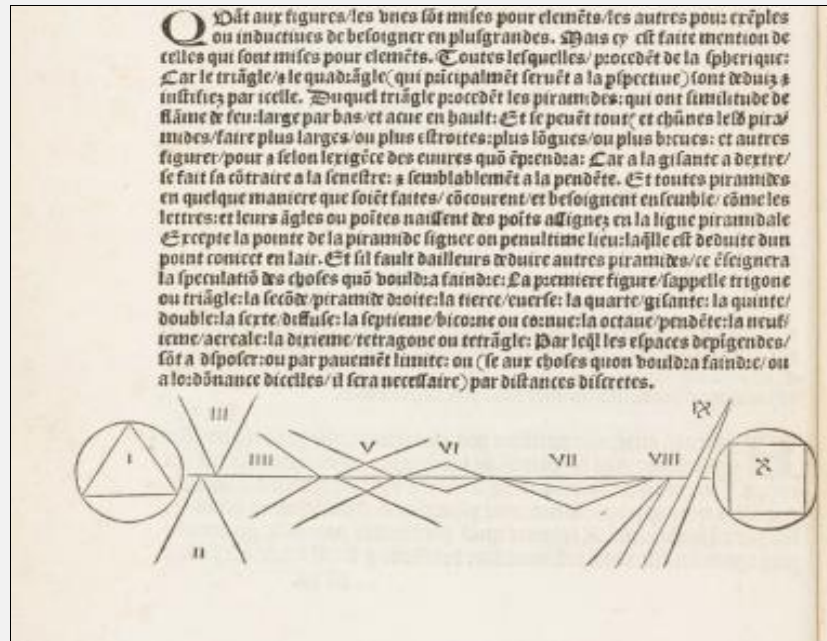 QVãt aux figures/les vnes sõt mises pour elemẽts/les autres pour exẽples
ou inductiues de besoigner en plusgrandes. Mais cy est faite mention de
celles qui sont mises pour elemẽts. Toutes lesquelles/procedẽt de la spherique:
Car le triãgle/⁊ le quadrãgle (qui pricipalmẽt seruẽt a la pspectiue) sont deduiz ⁊
iustifiez par icelle. Duquel triãgle procedẽt les piramides: qui ont similitude de
flãme de feu: large par bas/et acue en hault: Et se peuẽt tout (et chũnes lesd pira/
mides/faire plus larges/ou plus estroites: plus lõgues/ou plus breues: et autres
figurer/pour ⁊ selon lexigẽce des euures quõ ẽprendra: Car a la gisante a dextre/
se fait sa cõtraire a la senestre: ⁊ semblablemẽt a la pendẽte. Et toutes piramides
en quelque maniere que soiẽt faites/ cõcourent/et besoignent ensemble/ cõme les
lettres: et leurs ãgles ou poĩtes naissent des poĩts assignez en la ligne piramidale
Excepte la pointe de la piramide signee ou penultime lieu: laq̃lle est deduite dun
point conicet en lair. Et sil fault dailleurs deduire autres piramides/ce ẽseignera
la speculatiõ des choses quõ vouldra faindre: La premiere figure/sappelle trigone
ou triãgle: la secõde/piramide droite: la tierce/euerse: la quarte/gisante: la quinte/
double: la sexte/diffuse: la septieme/bicorne ou cornue: la octaue/pendẽte: la neuf/
ieme/aereale: la dixieme/tetragone ou tetrãgle: Par leq̃l les espaces depĩgendes/
sõt a dsposer: ou par pauemẽt limite: ou (se aux choses quon vouldra faindre/ou
a lordõnance dicelles/ il sera necessaire) par distances discretes.
I II III IIII V VI VII VIII IX X